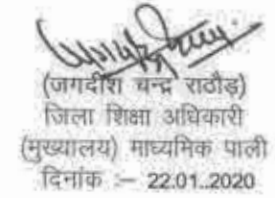 (जगदीश चन्द्र राठौड़)
जिला शिक्षा अधिकारी
(मुख्यालय) माध्यमिक पाली
दिनांक :– 22.01..2020